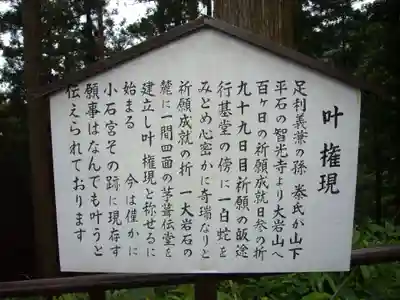 叶権現
足利義兼の孫 泰氏が山下
平石の智光寺より大岩山へ
百ヶ日の祈願成就日参の折
九十九日目祈願の飯途
行基堂の傍に一白蛇を
みとめ心密かに奇瑞なりと
祈願成就の折 一大岩石の
麓に一間四面の芽葺伝堂を
建立し叶 権現と称せるに
始まる 今は僅かに
小石宮その跡に現存す
願事はなんでも叶うと
伝えられております